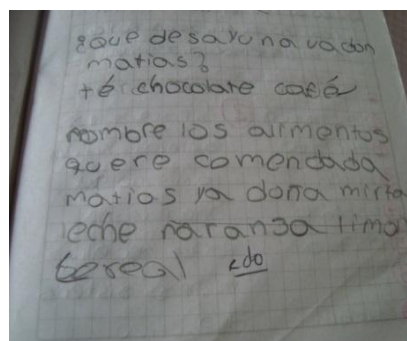 ¿que desayunava don
matias?
té chocolate café
nombre los alimentos
que re comendada
matias ya doña mirta
leche naranja limo
sereal